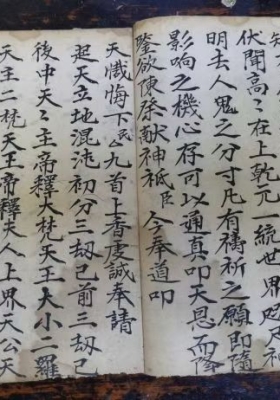 伏聞高〻在上乾元一統世界咫尺
明去人鬼之分寸凡有禱祈之願即隨
影响之機心存可以通真叩天恩而降
鑒欲陳發獻神祗臣 今奉道叩
天懺悔下民厶九首上香虔誠奉請
起天立地混沌初分三劫已前三劫已
後中天〻主帝釋大梵天王大小二羅
天主二梵天王帝釋天人上界天公天